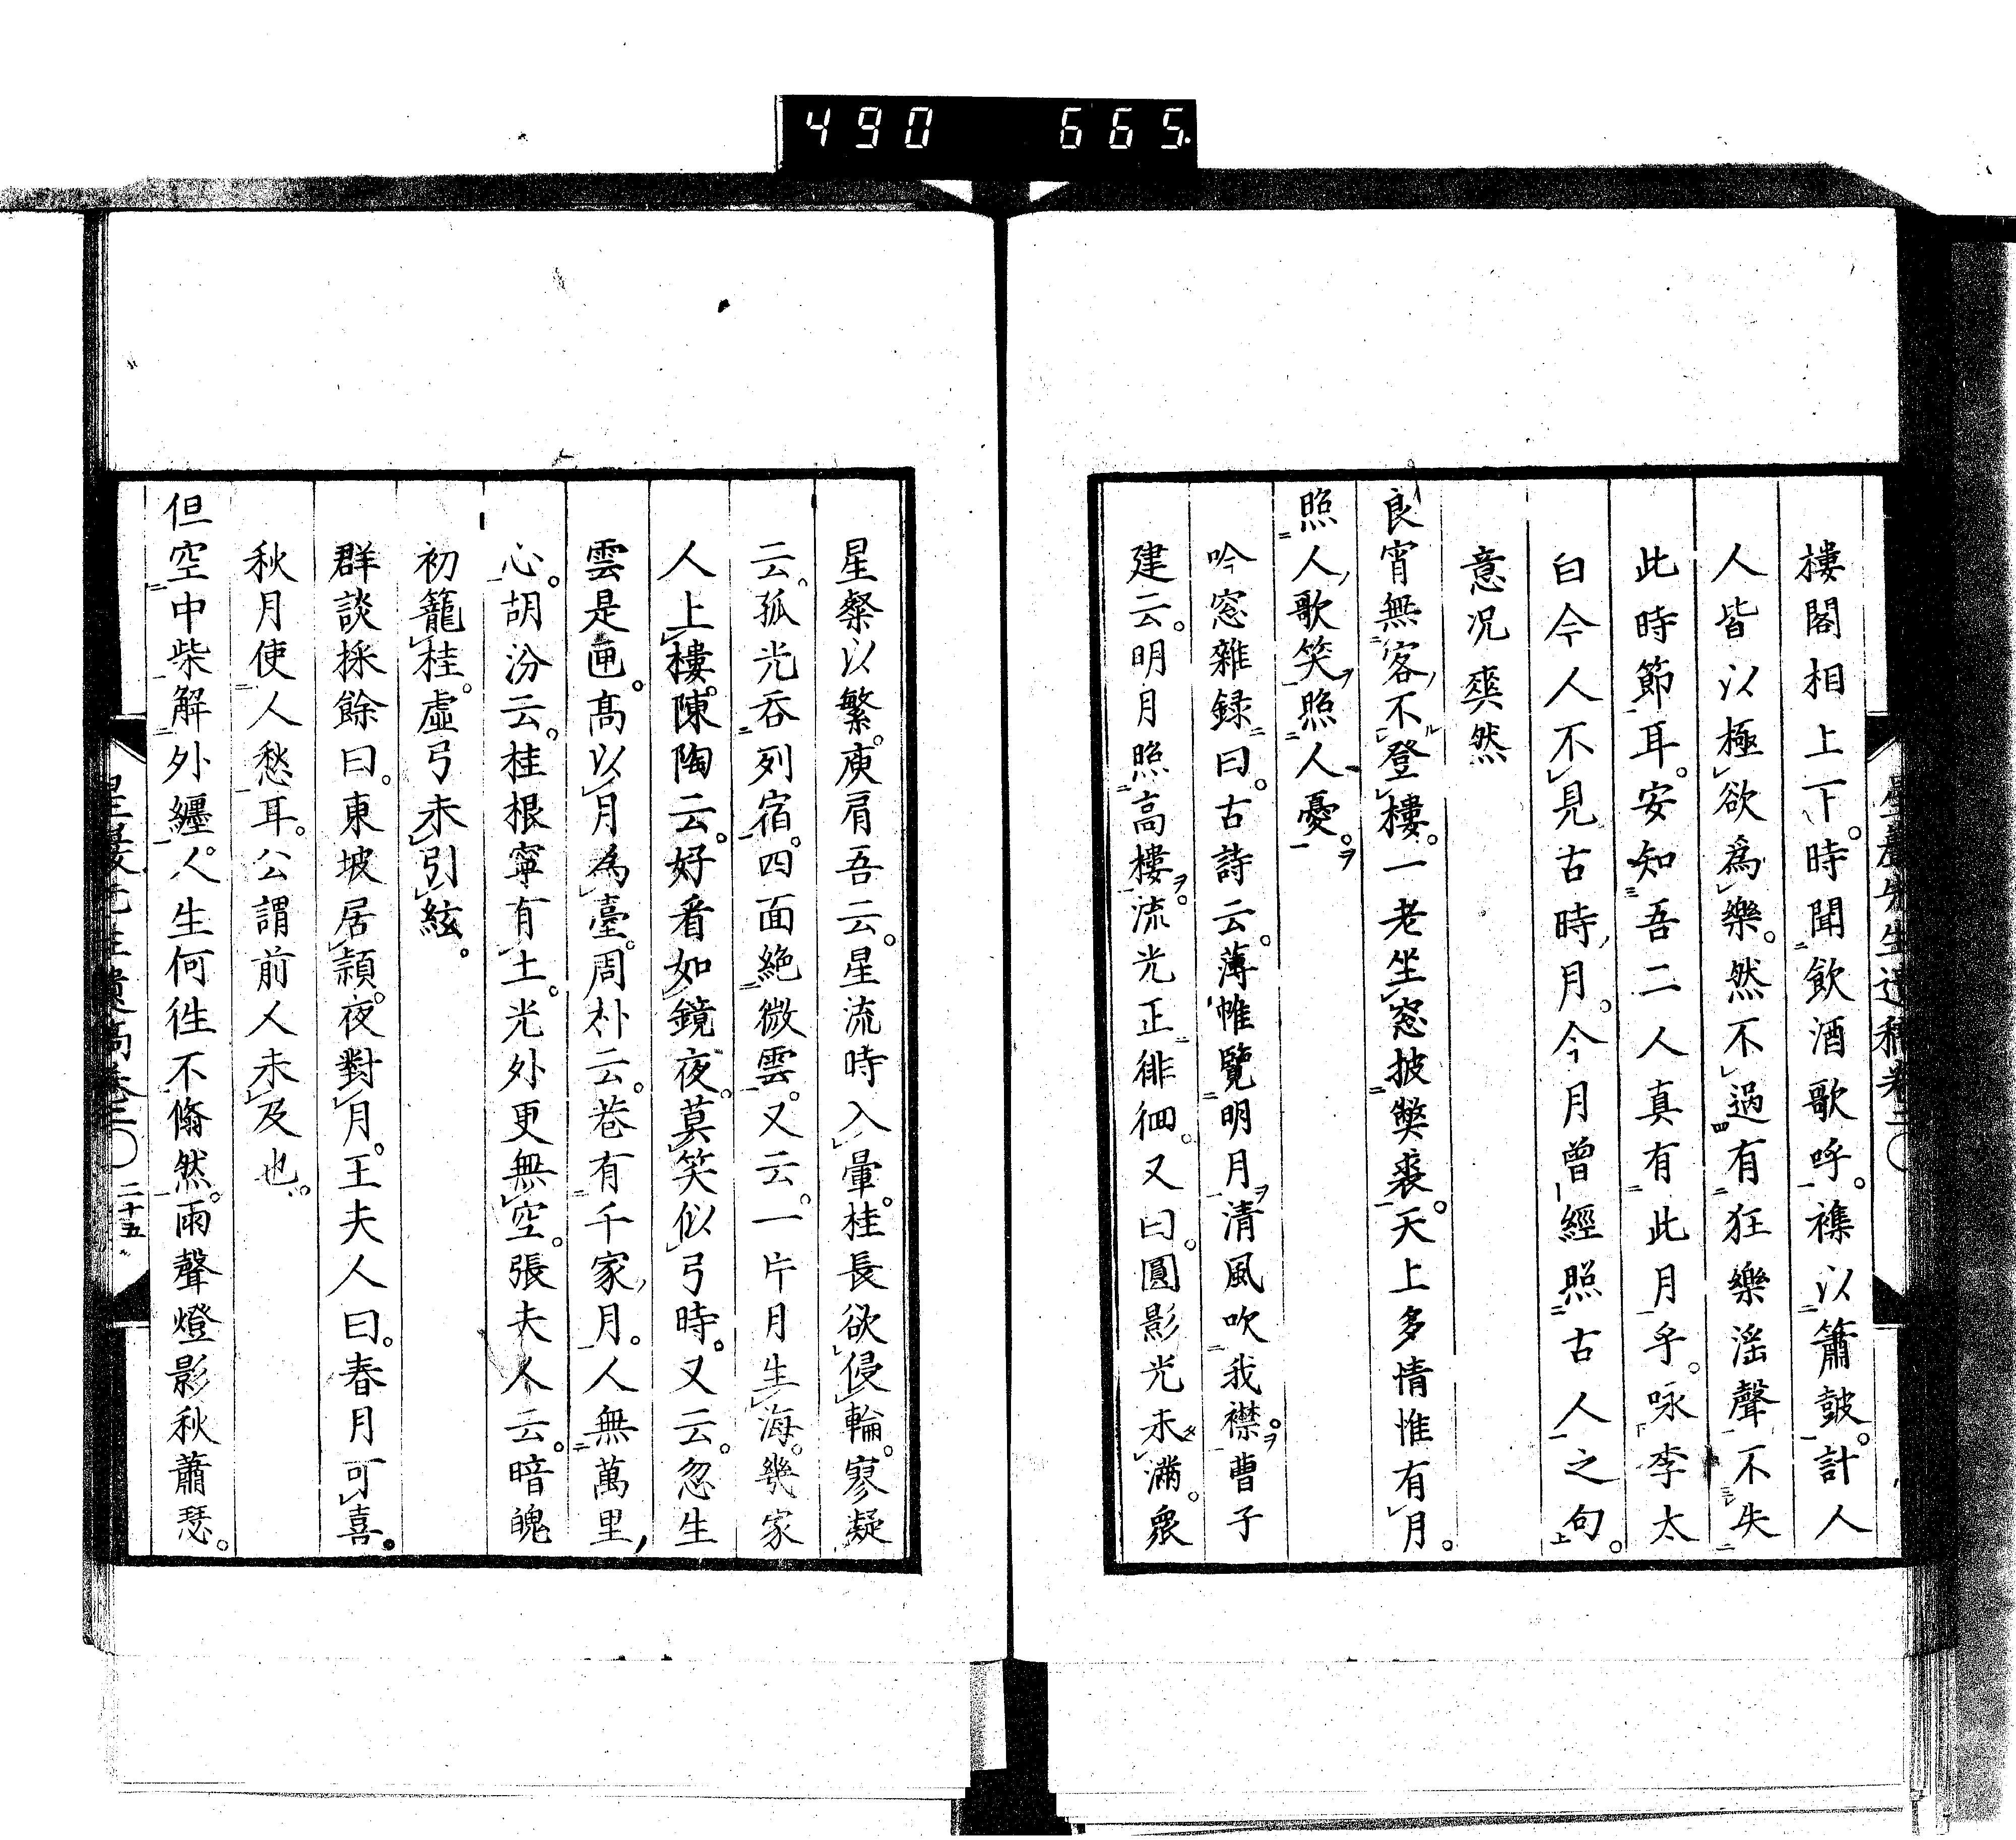 490 665
樓閣相上下。時聞飲酒歌呼。襍以簫鼓。計人
人皆以極欲爲樂。然不過有狂樂滛聲不失
此時節耳。安知吾二人真有此月乎。咏李太
白今人不見古時月。今月曾經照古人之句。
意況奭然
良宵無客不登樓。一老坐窓披獘裘。天上多情惟有月。
照人歌笑照人憂。
吟窓雜録曰。古詩云。薄帷覽明月清風吹我襟。曹子
建云。明月照高樓。流光正徘徊。又曰。圓影光未滿。衆
星粲以繁。庾肩吾云。星流時入暈。桂長欲侵輪。寥凝
云。孤光吞列宿。四面絶微雲。又云。一片月生海。幾家
人上樓。陳陶云。好看如鏡夜。莫笑似弓時。又云。忽生
雲是匣。高以月為臺。周朴云。巷有千家月。人無萬里
心。胡汾云。桂根寧有土。光外更無空。張夫人云。暗魄
初籠桂。虛弓未引絃。
群談採餘曰。東坡居頴。夜對月。王夫人曰。春月可喜。
秋月使人愁耳。公謂前人未及也。
但空中柴解外纏。人生何徃不翛然。雨聲燈影秋蕭瑟。
二十五